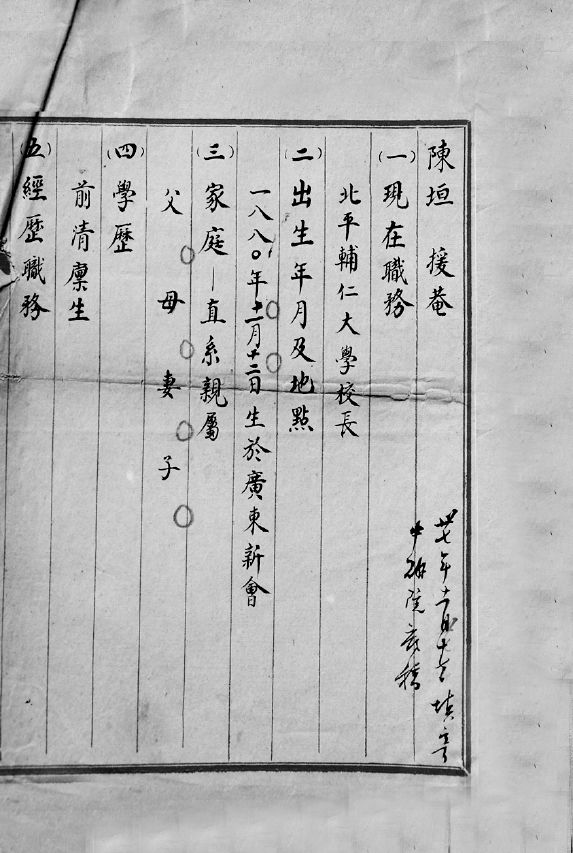 陳垣 援菴
(一)現在職務
北平輔仁大學校長
(二)出生年月及地點
一八八〇年十一月十二日生於廣東新會
(三)家庭—直系親屬
父 母 妻 子
(四)學歷
前清廩生
(五)經歷職務
卅七年
院 稿